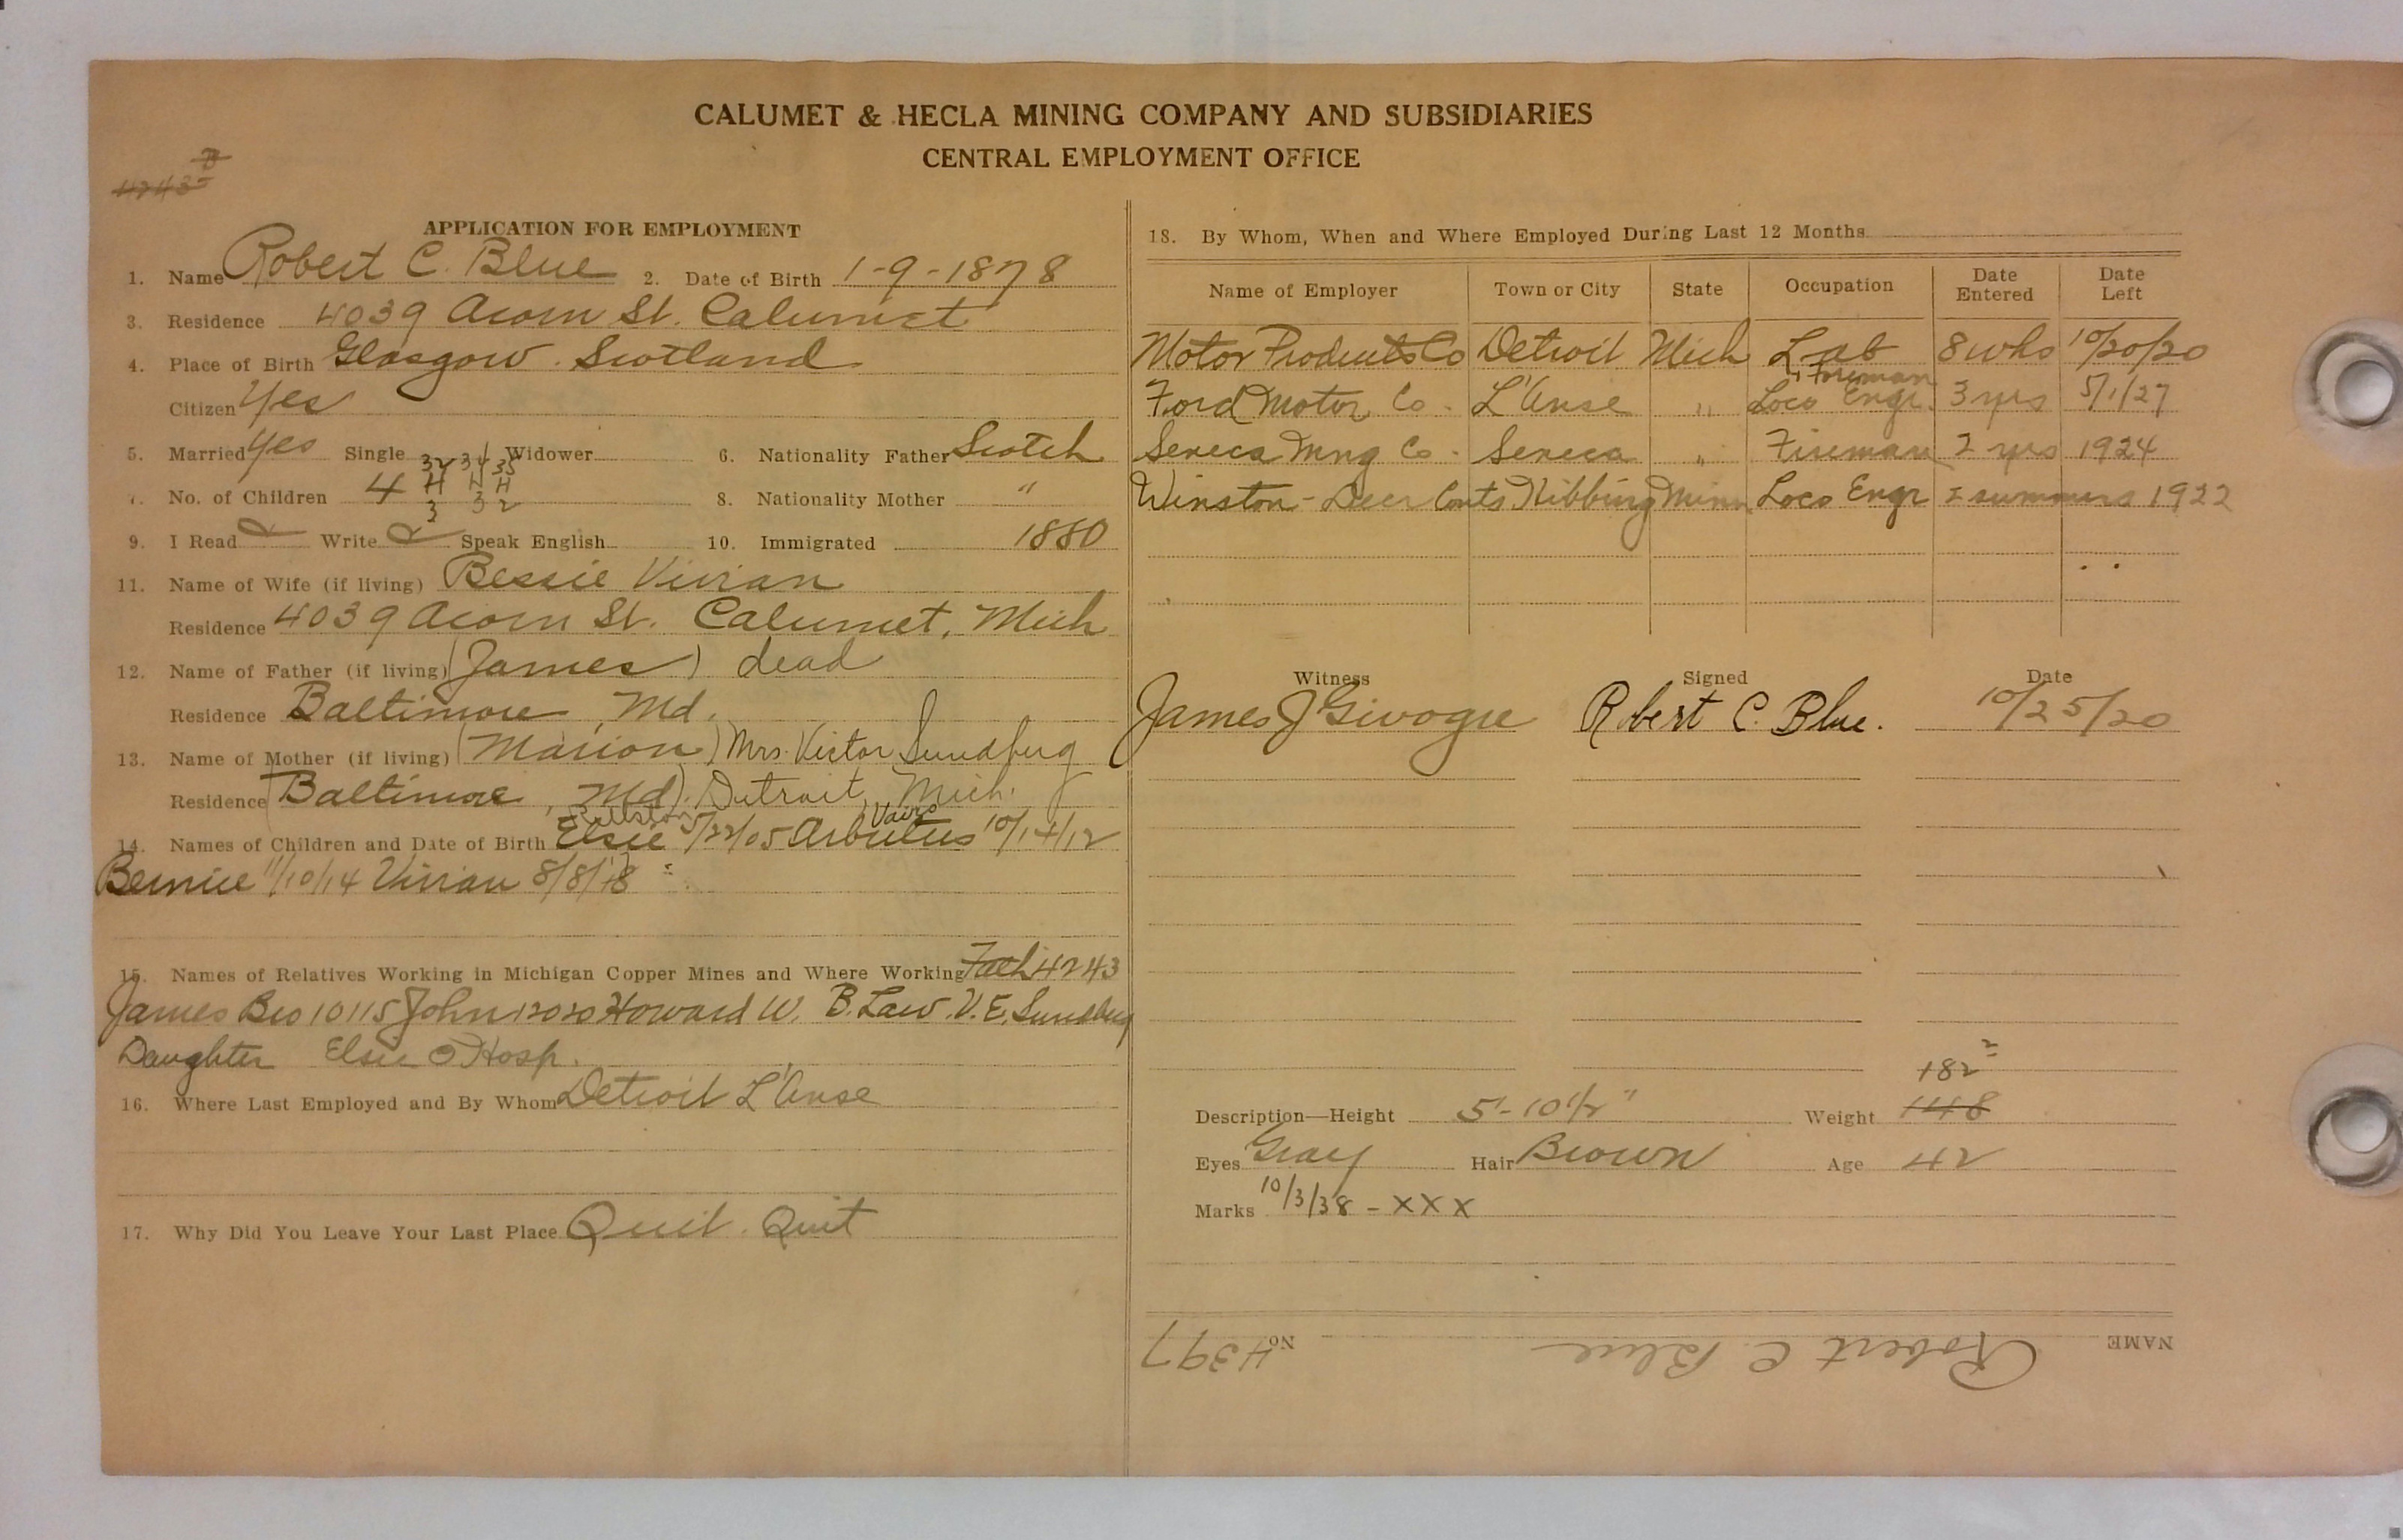 CALUMET & HECLA MINING COMPANY AND SUBSIDIARIES
CENTRAL EMPLOYMENT OFFICE
4243
APPLICATION FOR EMPLOYMENT
1. Name Robert C. Blue 2. Date of Birth 1-9-1878
3. Residence 4039 Acorn St. Calumet
4. Place of Birth Glasgow. Scotland
Citizen Yes
5. Married Yes Single Widower 6. Nationality Father Scotch
32 34 35
7. No. of Children 4 H H H 8. Nationality Mother "
3 3 2
9. I Read Write Speak English 10. Immigrated 1880
11. Name of Wife (if living) Bessie Vivian
Residence 4039 Acorn St. Calumet, Mich
12. Name of Father (if living) (James) dead
Residence Baltimore, Md.
13. Name of Mother (if living) (Marion) Mrs. Victor Sundberg
Residence (Baltimore, Md). Detroit, Mich.
14. Names of Children and Date of Birth Elsie 5/22/05 Arbutus 10/14/12
Bernice 11/10/14 Vivian 8/8/18
15. Names of Relatives Working in Michigan Copper Mines and Where Working Fath 4243
James Bro 10115 John 12020 Howard W. B. Law. V. E. Sundberg
Daughter Elsie Hosp.
16. Where Last Employed and By Whom Detroit L'Anse
17. Why Did You Leave Your Last Place Quit. Quit
18. By Whom, When and Where Employed During Last 12 Months
Name of Employer Town or City State Occupation Date Entered Date Left
Motor Products Co Detroit Mich Lab 8 wks 10/20/20
Foreman
Ford Motor Co. L'Anse " Loco Engr. 3 yrs 5/1/27
Seneca Mng Co. Seneca " Fireman 2 yrs 1924
Winston-Deer Conts Hibbing Minn Loco Engr 2 summers 1922
Witness Signed Date
James J Givogre Robert C. Blue. 10/25/20
182
Description—Height 5'-10 1/2" Weight 148
Eyes Gray Hair Brown Age 42
Marks 10/3/38 - XXX
NAME Robert C. Blue No. 4397